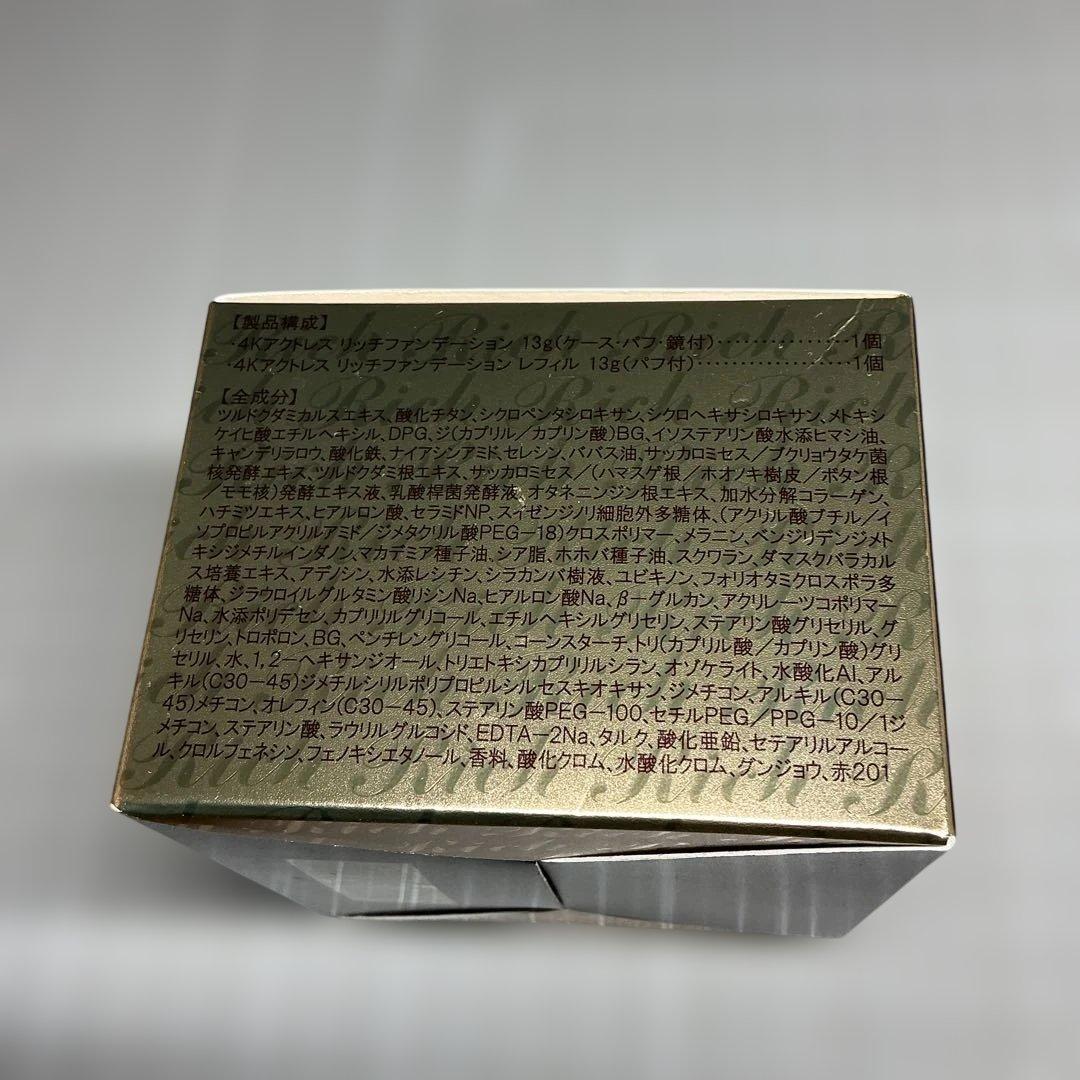 【製品構成】
・4Kアクトレス リッチファンデーション 13g(ケース・パフ・鏡付)················1個
・4Kアクトレス リッチファンデーション レフィル 13g(パフ付)··················1個
【全成分】
ツルドクダミカルスエキス、酸化チタン、シクロペンタシロキサン、シクロヘキサシロキサン、メトキシ
ケイヒ酸エチルヘキシル、DPG、ジ(カプリル/カプリン酸)BG、イソステアリン酸水添ヒマシ油、
キャンデリラロウ、酸化鉄、ナイアシンアミド、セレシン、ババス油、サッカロミセス/ブクリョウタケ菌
核発酵エキス、ツルドクダミ根エキス、サッカロミセス/(ハマスゲ根/ホオノキ樹皮/ボタン根
/モモ核)発酵エキス液、乳酸桿菌発酵液、オタネニンジン根エキス、加水分解コラーゲン、
ハチミツエキス、ヒアルロン酸、セラミドNP、スイゼンジノリ細胞外多糖体、(アクリル酸ブチル/イ
ソプロピルアクリルアミド/ジメタクリル酸PEG-18)クロスポリマー、メラニン、ベンジリデンジメト
キシジメチルインダノン、マカデミア種子油、シア脂、ホホバ種子油、スクワラン、ダマスクバラカル
ス培養エキス、アデノシン、水添レシチン、シラカンバ樹液、ユビキノン、フォリオタミクロスポラ多
糖体、ジラウロイルグルタミン酸リシンNa、ヒアルロン酸Na、β-グルカン、アクリレーツコポリマー
Na、水添ポリデセン、カプリリルグリコール、エチルヘキシルグリセリン、ステアリン酸グリセリル、グ
リセリン、トロポロン、BG、ペンチレングリコール、コーンスターチ、トリ(カプリル酸/カプリン酸)グリ
セリル、水、1,2-ヘキサンジオール、トリエトキシカプリリルシラン、オゾケライト、水酸化Al、アル
キル(C30-45)ジメチルシリルポリプロピルシルセスキオキサン、ジメチコン、アルキル(C30-
45)メチコン、オレフィン(C30-45)、ステアリン酸PEG-100、セチルPEG/PPG-10/1ジ
メチコン、ステアリン酸、ラウリルグルコシド、EDTA-2Na、タルク、酸化亜鉛、セテアリルアルコー
ル、クロルフェネシン、フェノキシエタノール、香料、酸化クロム、水酸化クロム、グンジョウ、赤201